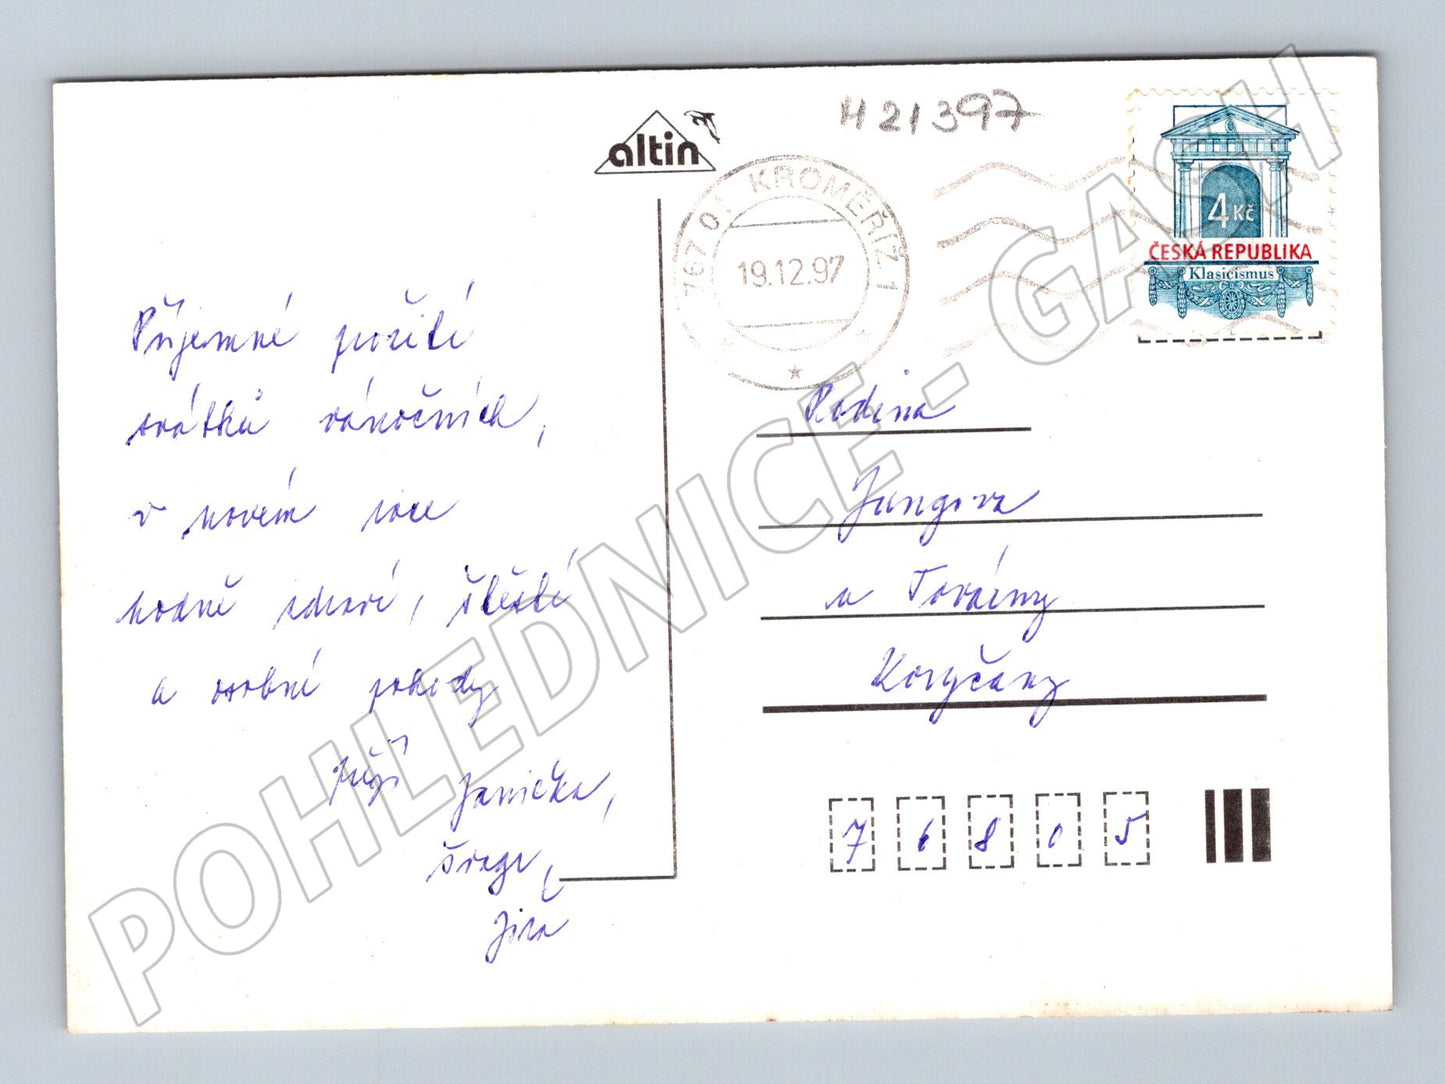 altin
H21397
767 01 KROMĚŘÍŽ 1
19.12.97
4 Kč
ČESKÁ REPUBLIKA
Klasicismus
Příjemné prožití
svátků vánočních,
v novém roce
hodně zdraví, štěstí
a osobní pohody
přejí Janička,
Jira
Rodina
Jungova
a Továrny
Koryčany
76805
POHLEDNICE - GASH